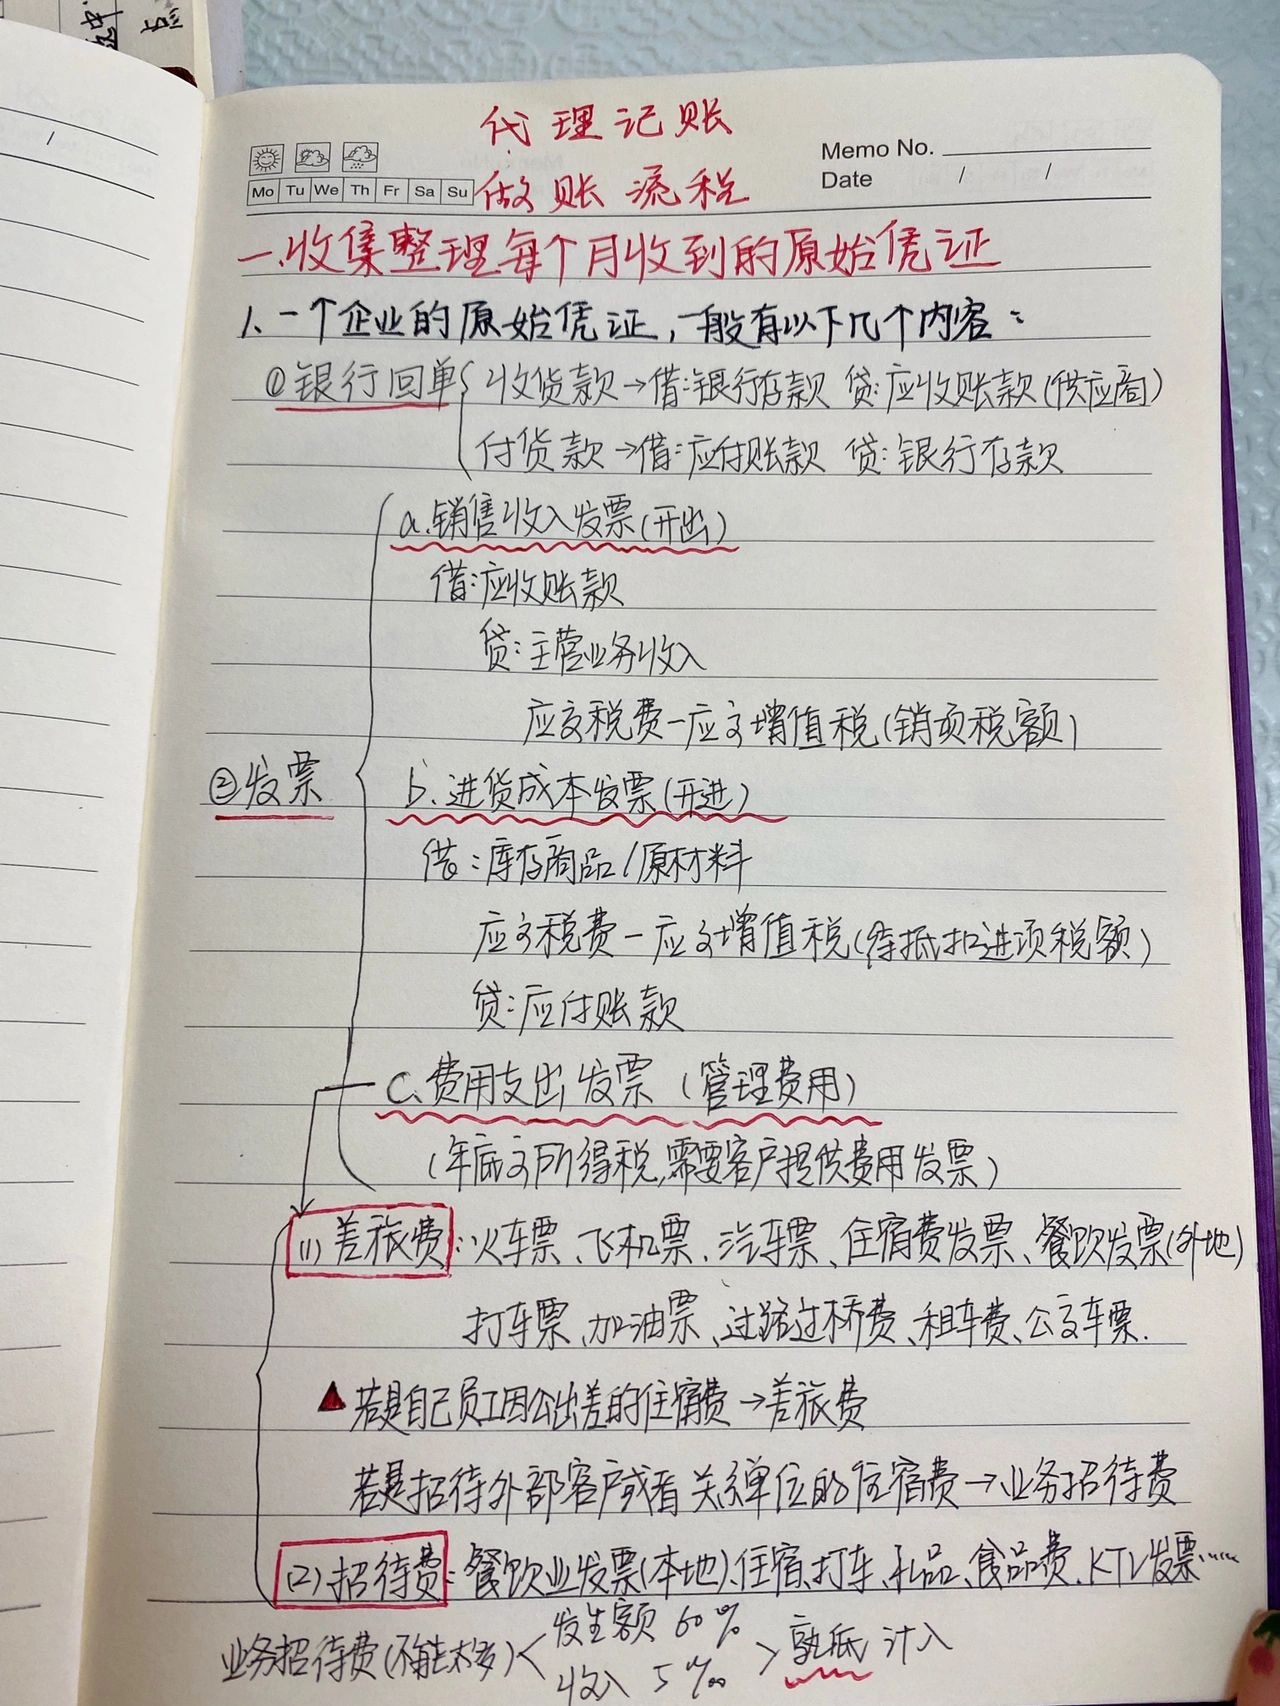 代理记账
Memo No.
Date / /
Mo Tu We Th Fr Sa Su
做账流税
一、收集整理每个月收到的原始凭证
1、一个企业的原始凭证,一般有以下几个内容:
①银行回单{收货款→借:银行存款 贷:应收账款(供应商)
付货款→借:应付账款 贷:银行存款
a.销售收入发票(开出)
借:应收账款
贷:主营业务收入
应交税费—应交增值税(销项税额)
②发票
b.进货成本发票(开进)
借:库存商品/原材料
应交税费—应交增值税(待抵扣进项税额)
贷:应付账款
C.费用支出发票(管理费用)
(年底交所得税,需要客户提供费用发票)
(1)差旅费:火车票、飞机票、汽车票、住宿费发票、餐饮发票(外地)
打车票、加油票、过路过桥费、租车费、公交车票.
▲若是自己员工因公出差的住宿费→差旅费
若是招待外部客户或者关系单位的住宿费→业务招待费
(2)招待费:餐饮业发票(本地)、住宿、打车、礼品、食品费、KTV发票……
业务招待费(不能太多)<发生额 60%
收入 5‰ >孰低 计入